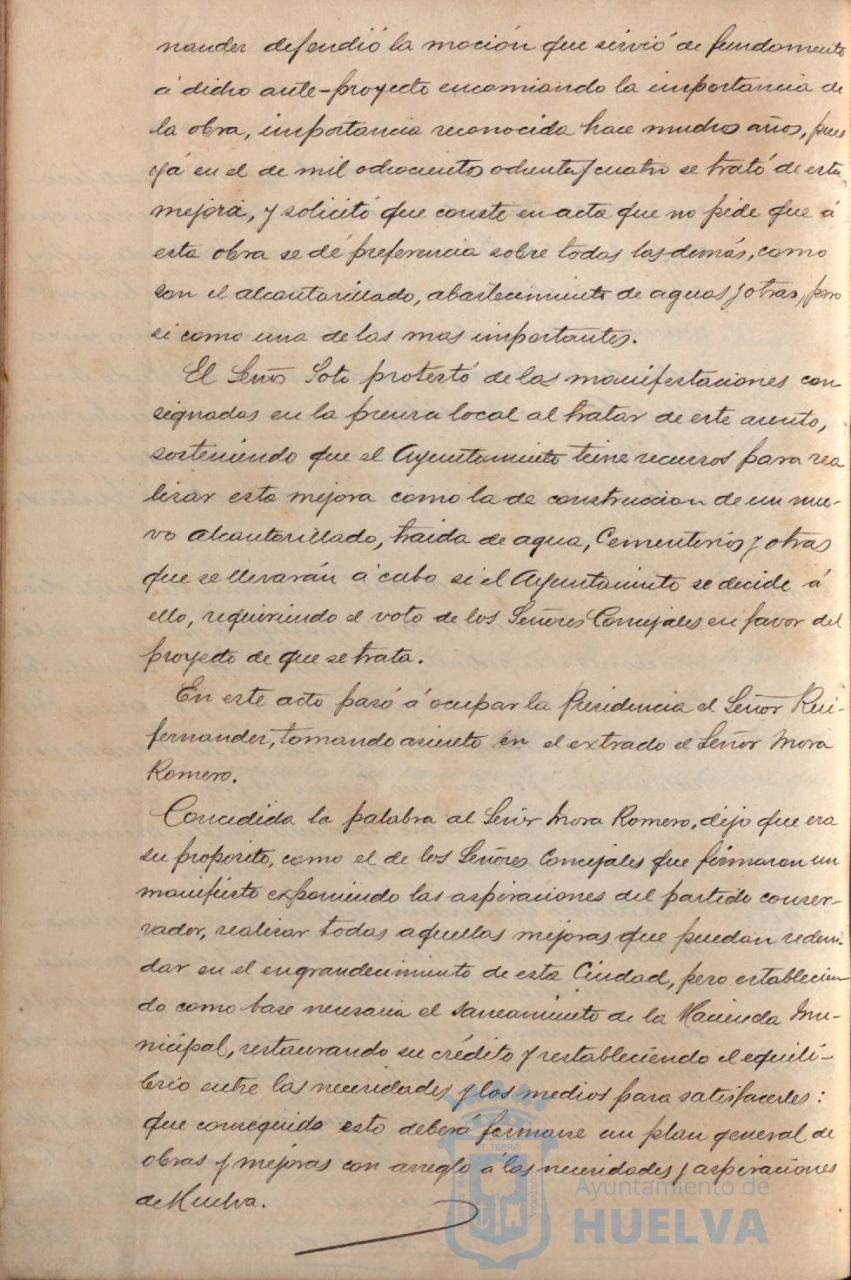 nander defendió la moción que sirvió de fundamento
á dicho ante-proyecto encomiando la importancia de
la obra, importancia reconocida hace muchos años, pues
yá en el de mil ochocientos ochenta y cuatro se trató de esta
mejora, y solicitó que conste en acta que no pide que á
esta obra se dé preferencia sobre todas las demás, como
son el alcantarillado, abastecimiento de aguas y otras, pero
si como una de las mas importantes.
El Señor Soto protestó de las manifestaciones con
signadas en la prensa local al tratar de este asunto,
sosteniendo que el Ayuntamiento tiene recursos para rea
lizar esta mejora como la de construccion de un nue-
vo alcantarillado, traida de agua, Cementerios y otras
que se llevarán á cabo si el Ayuntamiento se decide á
ello, requiriendo el voto de los Señores Concejales en favor del
proyecto de que se trata.
En este acto pasó á ocupar la Presidencia el Señor Rui-
fernandez, tomando asiento en el extrado el Señor Mora
Romero.
Concedida la palabra al Señor Mora Romero, dijo que era
su proposito, como el de los Señores Concejales que firmaron un
manifiesto exponiendo las aspiraciones del partido conser-
vador, realizar todas aquellas mejoras que puedan redun
dar en el engrandecimiento de esta Ciudad, pero establecien
do como base necesaria el saneamiento de la Hacienda Mu-
nicipal, restaurando su crédito y restableciendo el equili-
brio entre las necesidades y los medios para satisfacerles:
que conseguido esto deberá formarse un plan general de
obras y mejoras con arreglo á las necesidades y aspiraciones
de Huelva.
Ayuntamiento de
HUELVA